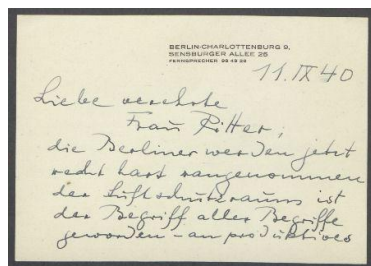 BERLIN-CHARLOTTENBURG 9,
SENSBURGER ALLEE 26
FERNSPRECHER 99 43 36
11.IX 40
Liebe verehrte
Frau Ritter,
die Berliner werden jetzt
recht hart rangenommen
der Luftschutzraum ist
der Begriff aller Begriffe
geworden – an produktives